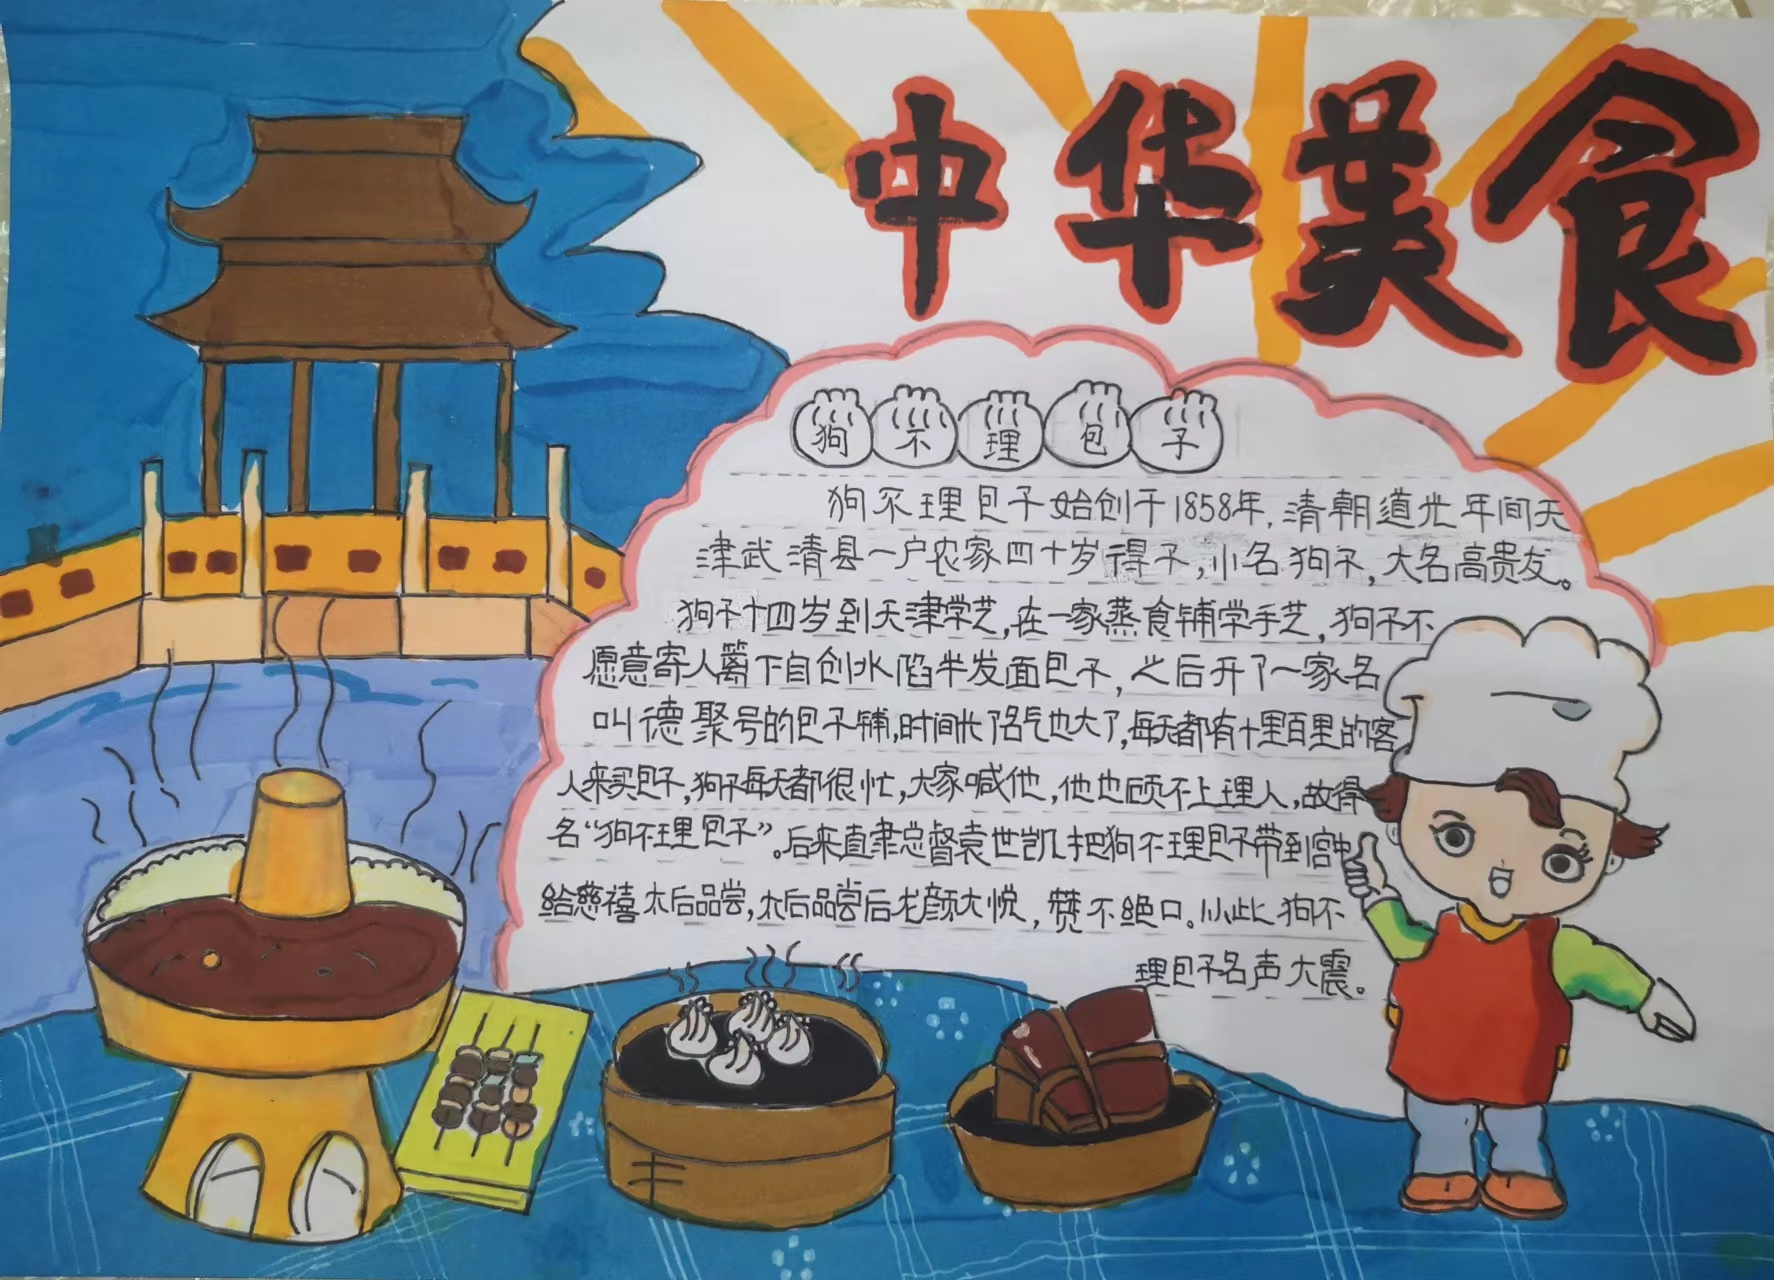 中华美食
狗不理包子
狗不理包子始创于1858年,清朝道光年间天
津武清县一户农家四十岁得子,小名狗子,大名高贵友。
狗子十四岁到天津学艺,在一家蒸食铺学手艺,狗子不
愿意寄人篱下自创水馅半发面包子,之后开了一家名
叫德聚号的包子铺,时间长了名气也大了,每天都有十里百里的客
人来买包子,狗子每天都很忙,大家喊他,他也顾不上理人,故得
名“狗不理包子”。后来直隶总督袁世凯把狗不理包子带到宫中
给慈禧太后品尝,太后品尝后龙颜大悦,赞不绝口。从此狗不
理包子名声大震。